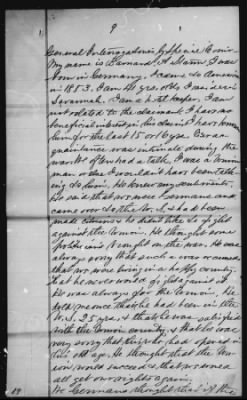 9
General Interrogatories by Special Com'r
My name is Barnard A I was
born in Germany. I came to America
in 1853. I am 41 yrs old. I reside in
Savannah. I am a hotel keeper, I am
not related to the claimant I have no
beneficial interest in this claim I have known
him for the last 15 or 16 yrs Our ac-
quaintance was intimate during the
war We often had a talk. I was a Union
man or else I wouldn't have been talk-
ing to him. He knew my sentiments.
He said that we most Germans and
came over to the U.S. & had been
made citizens & he didn't like to fight
against the Union. He thought some
politicians brought on the war. He was
always sorry that such a war occurred,
that we were living in a happy country
that he never would fight against it.
He was always for the Union. He
told me once that he had been in the
U.S. 25 years & that he was satisfied
with the Union country, & that he was
very sorry that trouble had opened in
his old age. He thought that the Un-
ion would succeed & that we would
all get our rights again.
We Germans thought that if the